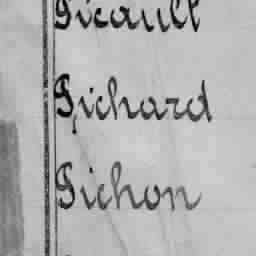 Picault
Pichard
Pichon